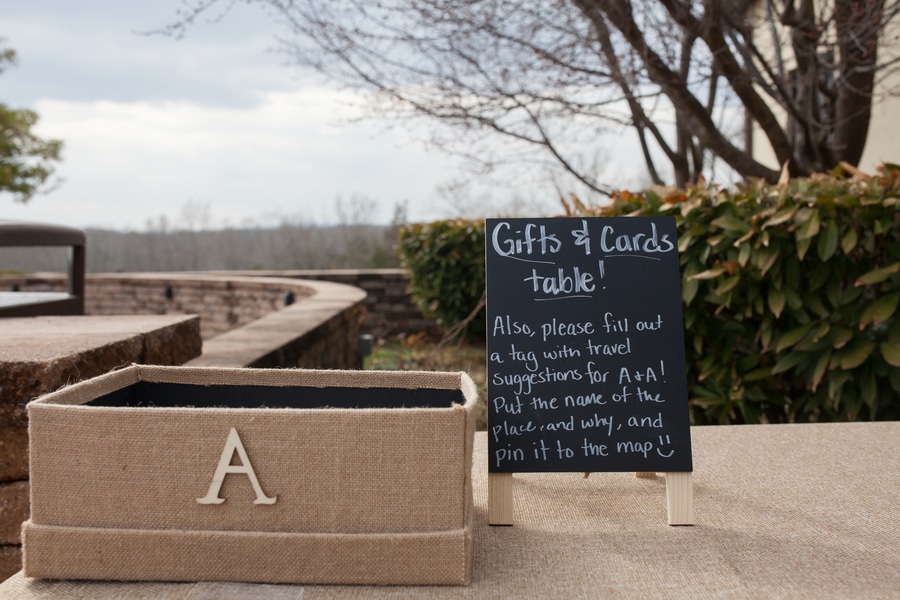 A
Gifts & Cards
table!
Also, please fill out
a tag with travel
suggestions for A+A!
Put the name of the
place, and why, and
pin it to the map